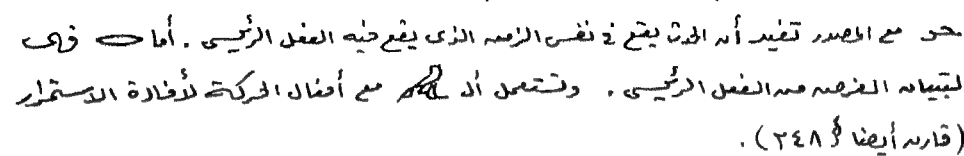 مع المصدر تفيد أن الحدث يقع في نفس الزمن الذى يقع فيه الفعل الرئيسى . أما فهى
لتبيان الغرض من الفعل الرئيسى . وتستعمل مع أفعال الحركة لأفادة الاستمرار
(قارن أيضا § ٢٤٨) .